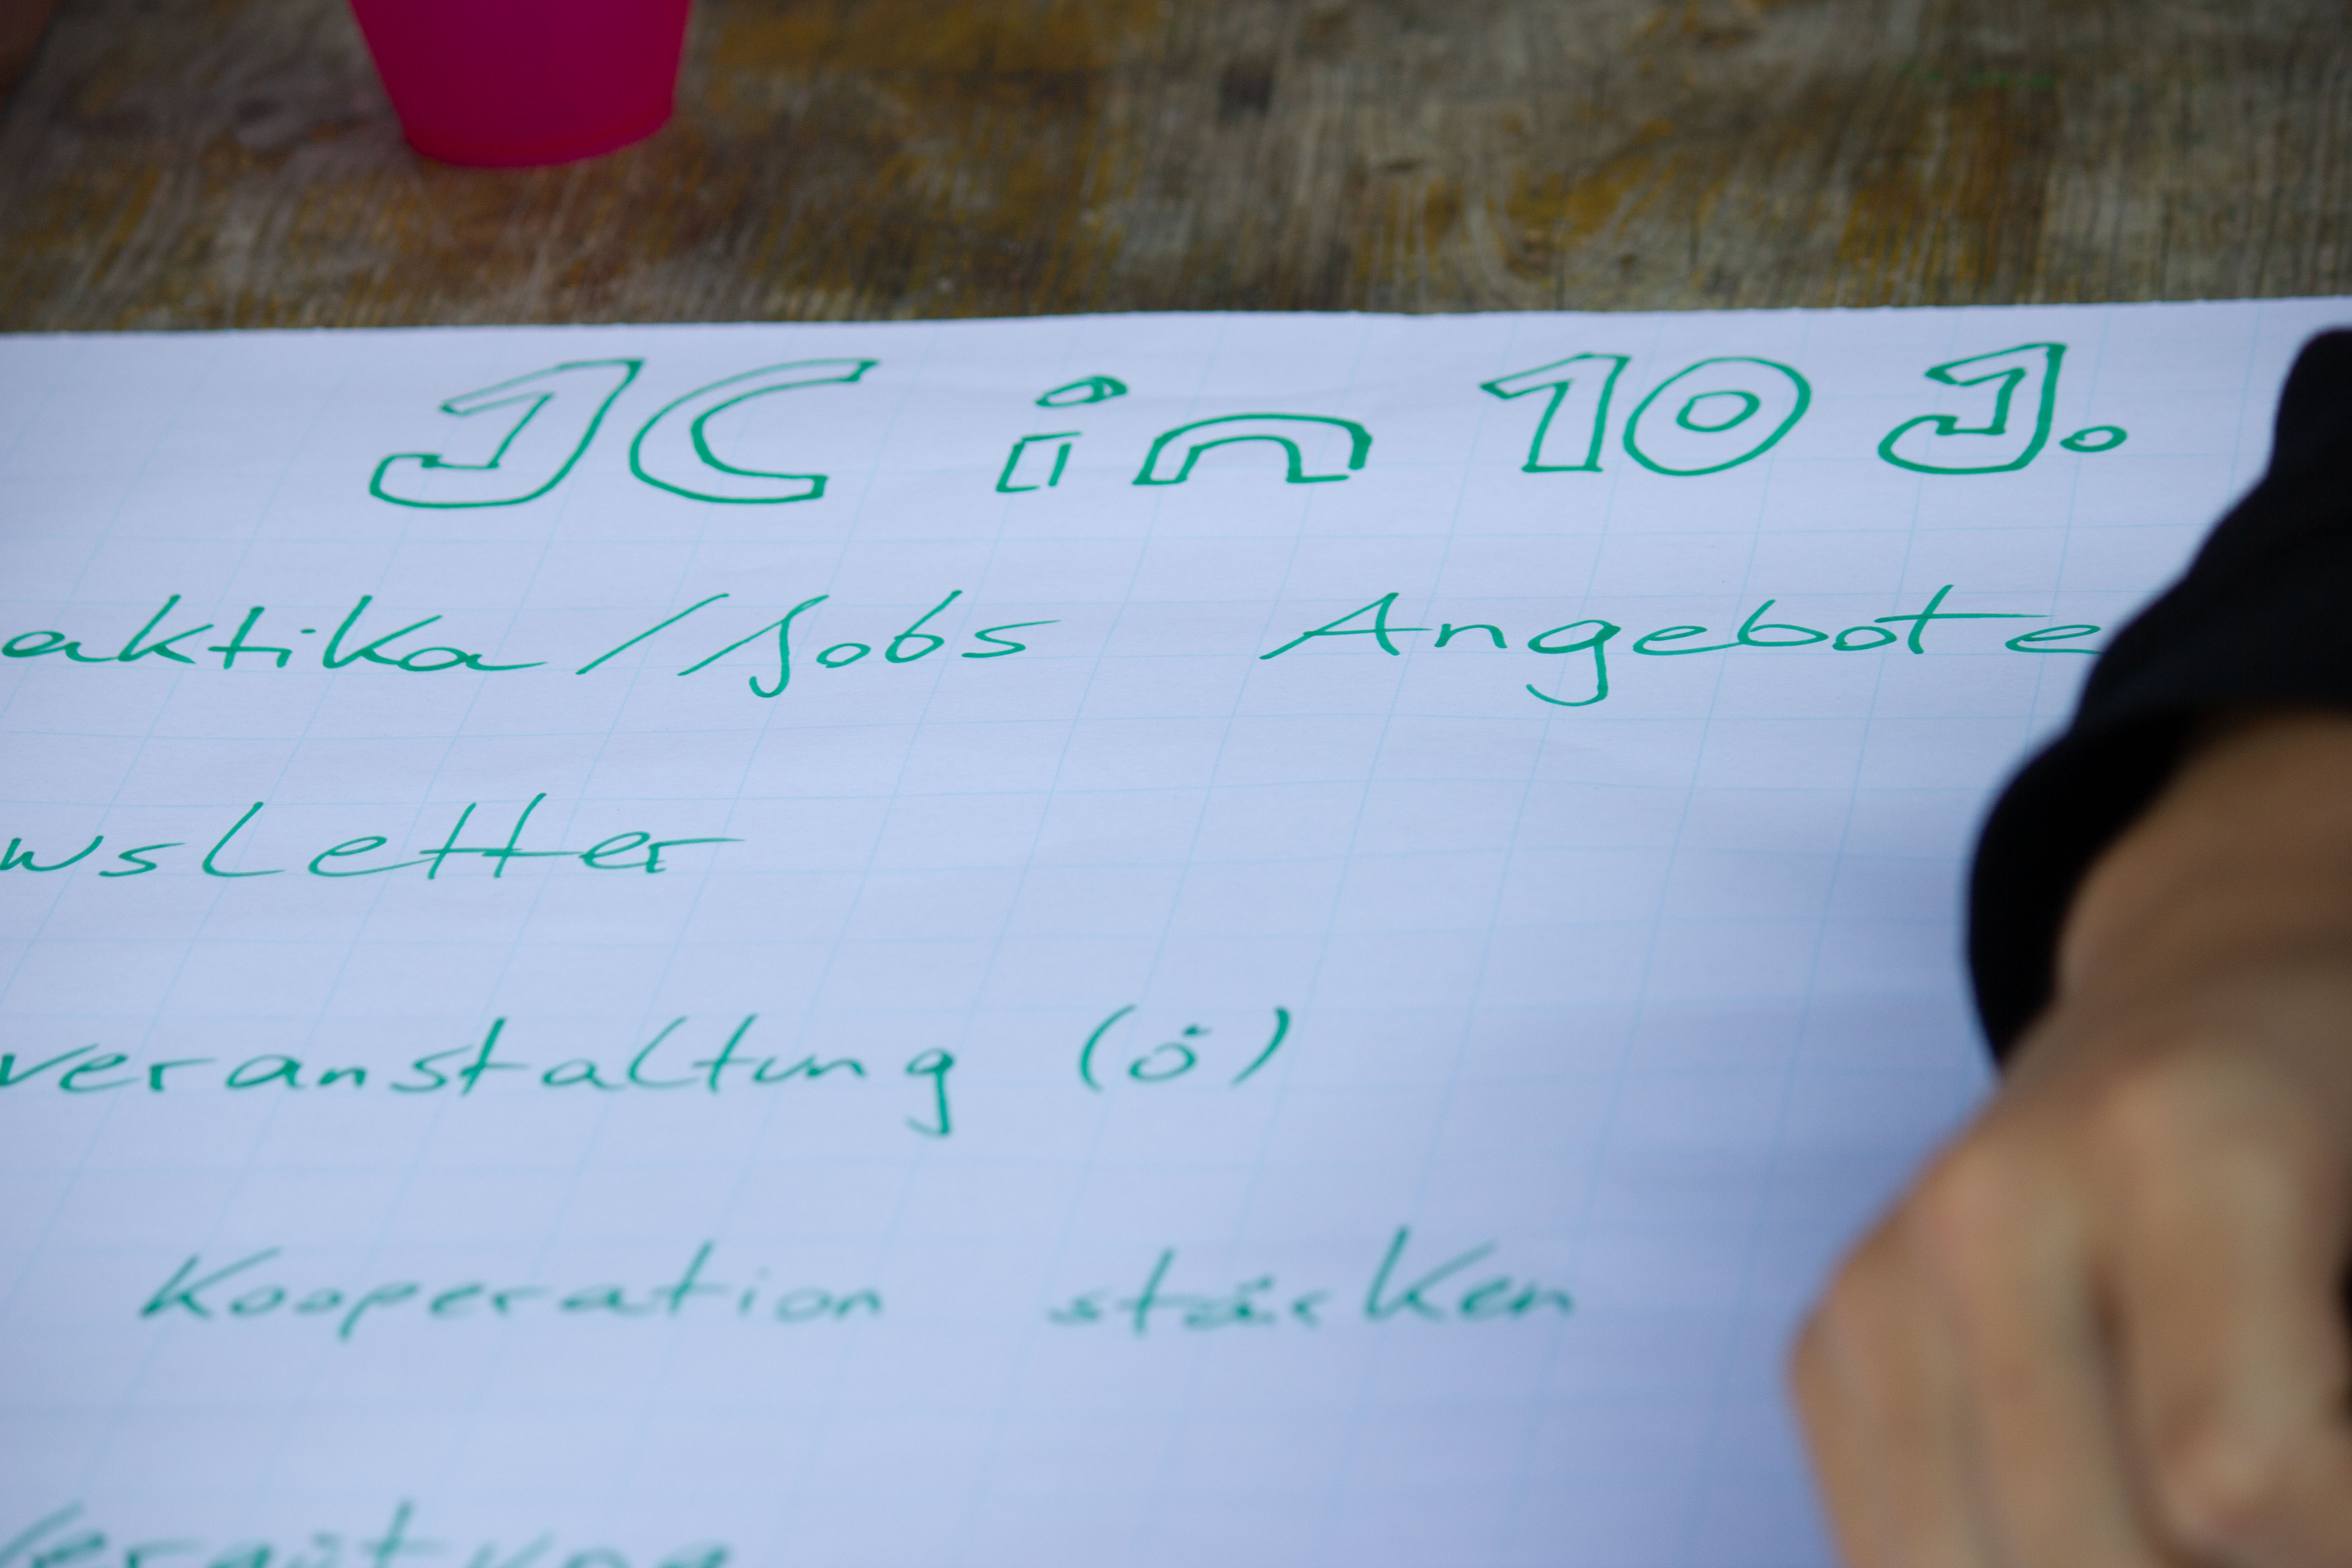 JC in 10 J.
aktika / Jobs Angebote
wsletter
veranstaltung (ö)
Kooperation stärken
Vergütung